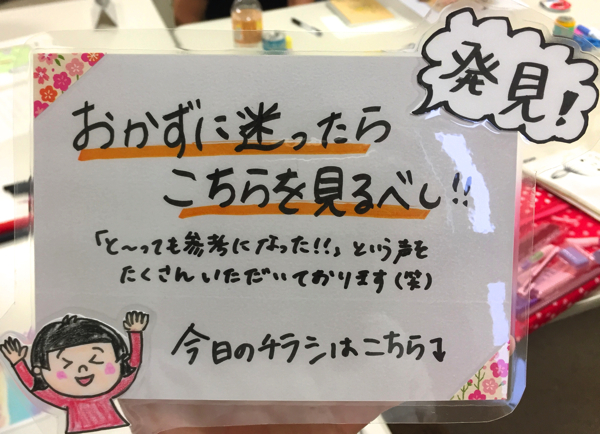 発見!
おかずに迷ったら
こちらを見るべし!!
「と〜っても参考になった!!」という声を
たくさんいただいております(笑)
今日のチラシはこちら↴